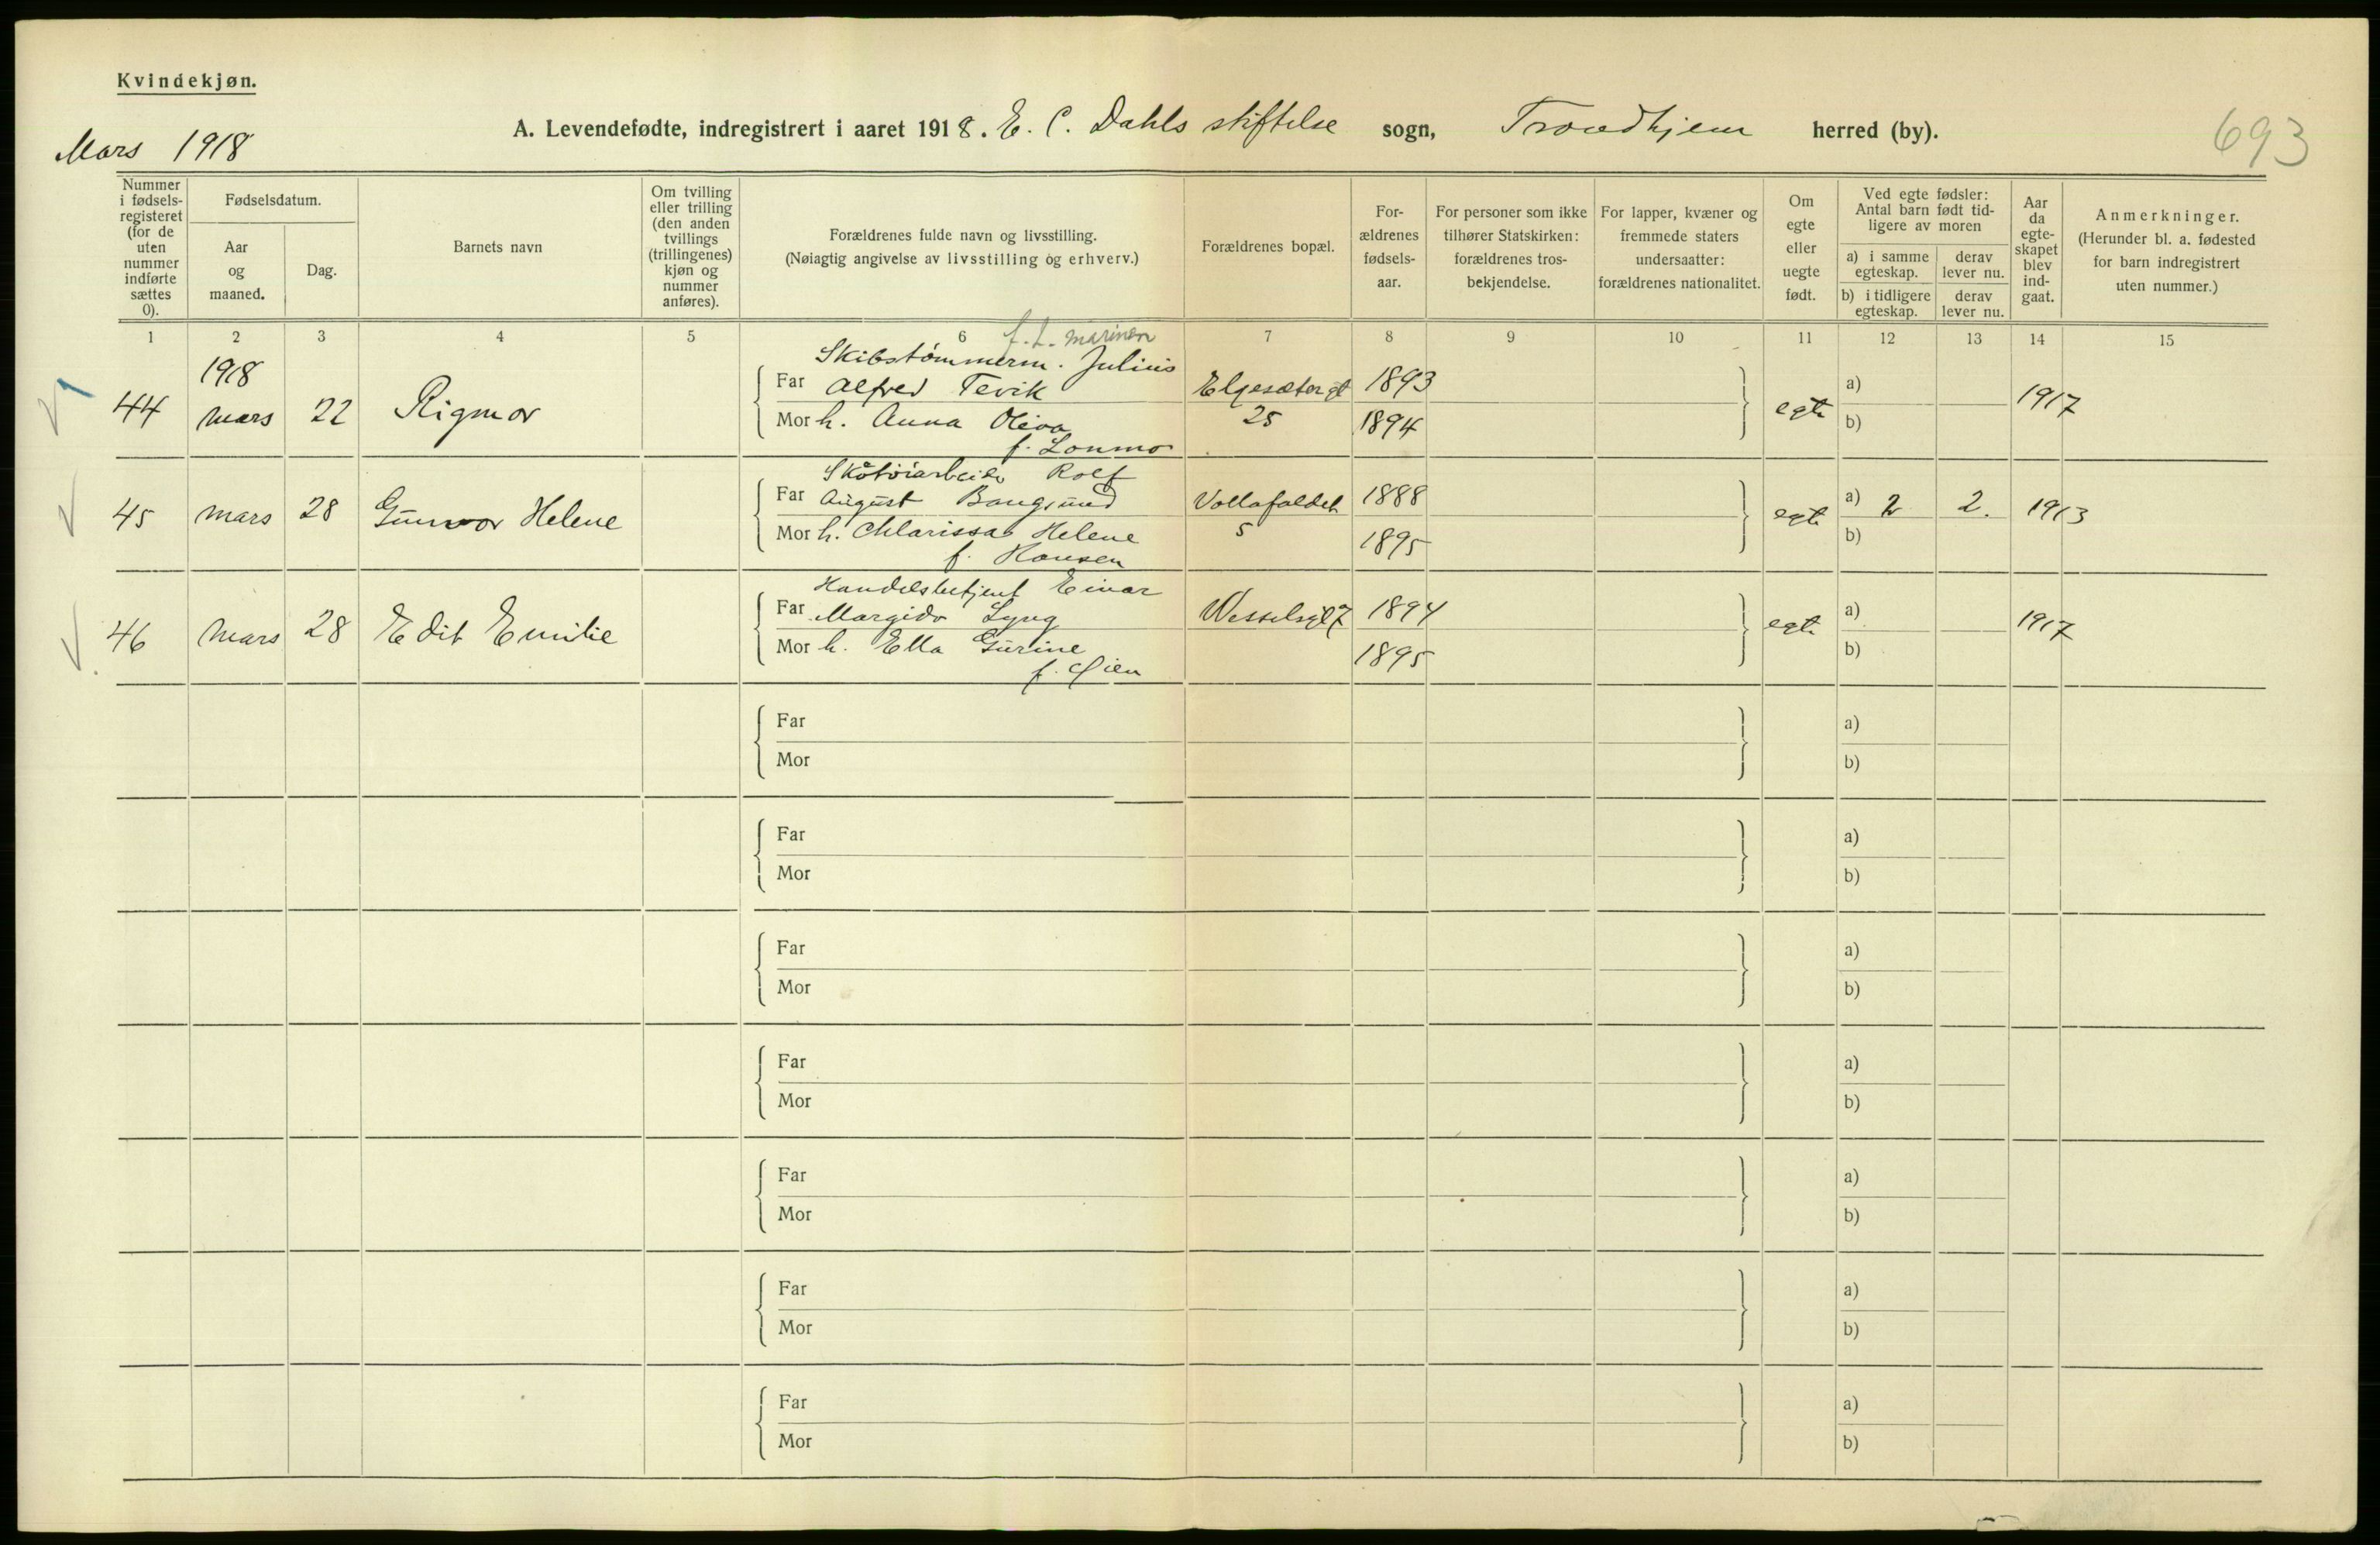 Kvindekjøn.
Mars 1918
A. Levendefødte, indregistrert i aaret 1918. E. C. Dahls stiftelse sogn, Trondhjem herred (by).
693
Nummer i fødsels-registeret (for de uten nummer indførte sættes 0).
Fødselsdatum.
Aar og maaned.
Dag.
Barnets navn
Om tvilling eller trilling (den anden tvillings (trillingenes) kjøn og nummer anføres).
Forældrenes fulde navn og livsstilling.
(Nøiagtig angivelse av livsstilling og erhverv.)
Forældrenes bopæl.
For-ældrenes fødsels-aar.
For personer som ikke tilhører Statskirken: forældrenes tros-bekjendelse.
For lapper, kvæner og fremmede staters undersaatter: forældrenes nationalitet.
Om egte eller uegte født.
Ved egte fødsler: Antal barn født tid-ligere av moren
a) i samme egteskap.
derav lever nu.
b) i tidligere egteskap.
derav lever nu.
Aar da egte-skapet blev ind-gaat.
Anmerkninger.
(Herunder bl. a. fødested for barn indregistrert uten nummer.)
1 2 3 4 5 6 7 8 9 10 11 12 13 14 15
f. t. marinen
Skibstømmerm. Julius
1918
44 mars 22 Rigmor
Far Alfred Tevik Elgesætergt 1893
Mor h. Anna Oliva 25 1894 egte a) b) 1917
f. Lonmo
Skotøiarbeider Rolf
45 mars 28 Gunvor Helene
Far August Bangsund Vollafaldet 1888
Mor h. Chlarissa Helene 5 1895 egte a) 2 2. b) 1913
f. Hansen
Handelsbetjent Einar
46 mars 28 Edit Emilie
Far Margido Lyng Wesselsgt 7 1894
Mor h. Ella Gurine 1895 egte a) b) 1917
f. Gien
Far a)
Mor b)
Far a)
Mor b)
Far a)
Mor b)
Far a)
Mor b)
Far a)
Mor b)
Far a)
Mor b)
Far a)
Mor b)